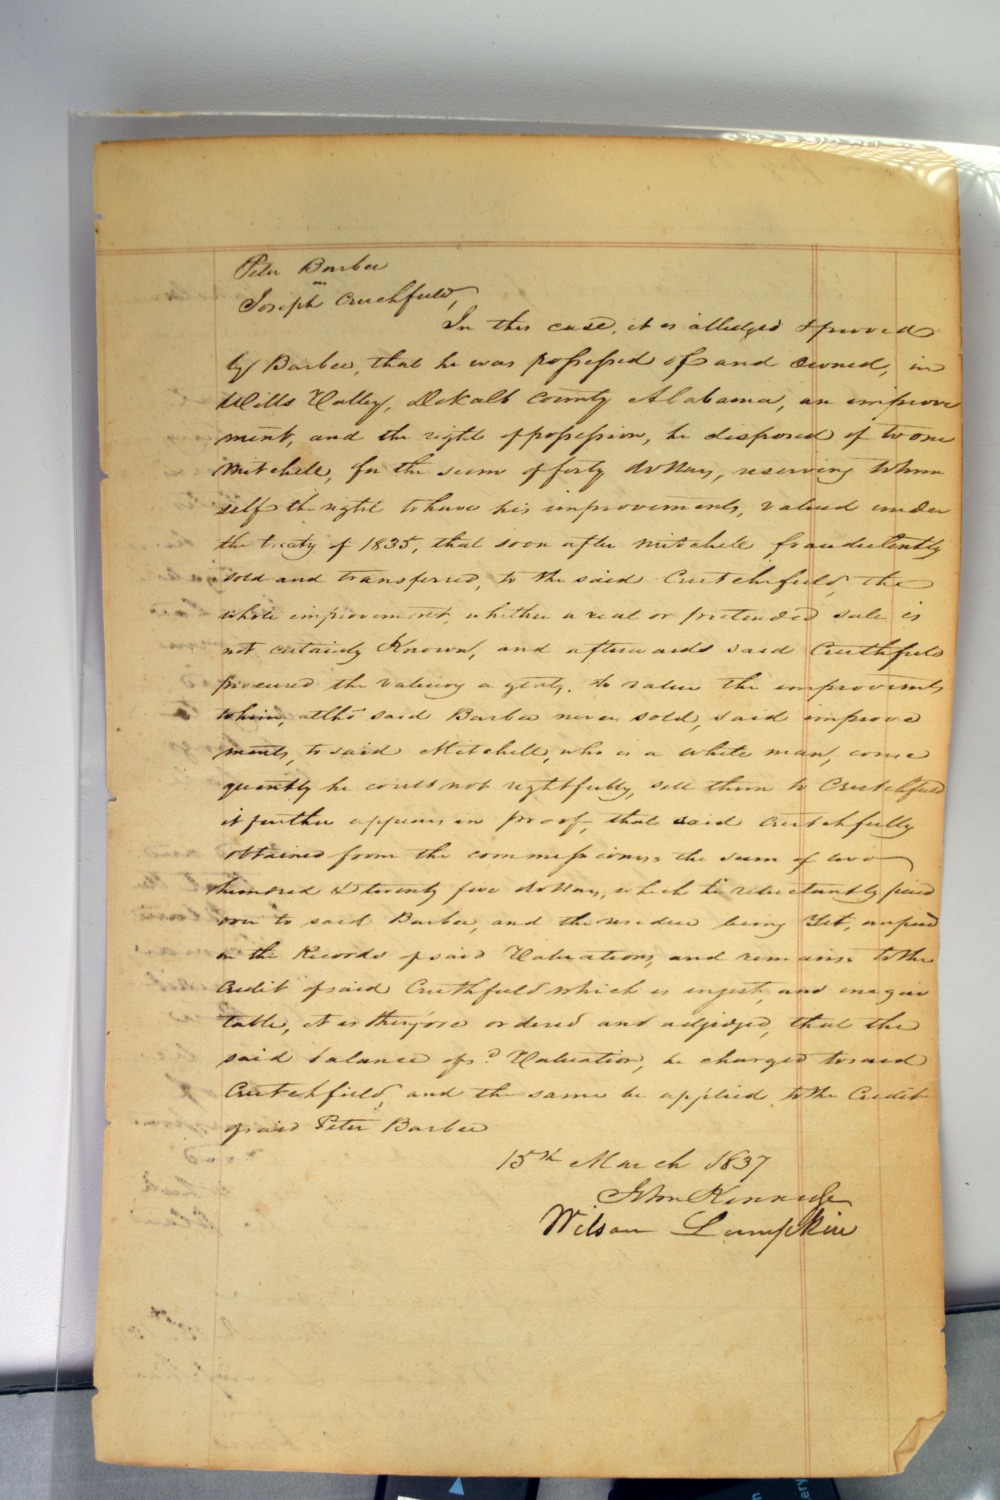 Peter Barbee
vs
Joseph Crutchfield,
In this case, it is alledged & proved
by Barbee, that he was possessed of and owned, in
Wills Valley, DeKalb County Alabama, an improve
ment, and the right of possession, he disposed of to one
Mitchell, for the sum of forty dollars, reserving to him
self the right to have his improvements, valued under
the treaty of 1835, that soon after Mitchell fraudulently
sold and transferred, to the said Crutchfield, the
whole improvement, whether a real or pretended sale is
not certainly Known, and afterwards said Cruthfield
procured the valuing agents. to value the improvements
to him, altho said Barbee never sold, said improve
ments, to said Mitchell, who is a white man, conse
quently he could not rightfully, sell them to Crutchfield
it further appears in proof, that said Crutchfield
obtained from the commissioners the sum of two
hundred & twenty five dollars, which he reluctantly paid
over to said Barbee, and the residue being yet, unpaid
on the Records of said Valuations, and remains to the
Credit of said Cruthfield which is unjust, and inequi
table, it is therefore ordered and adjudged, that the
said balance of sd Valuation, be charged to said
Crutchfield, and the same be applied to the Credit
of said Peter Barbee
15th March 1837
John Kennedy
Wilson Lumpkin